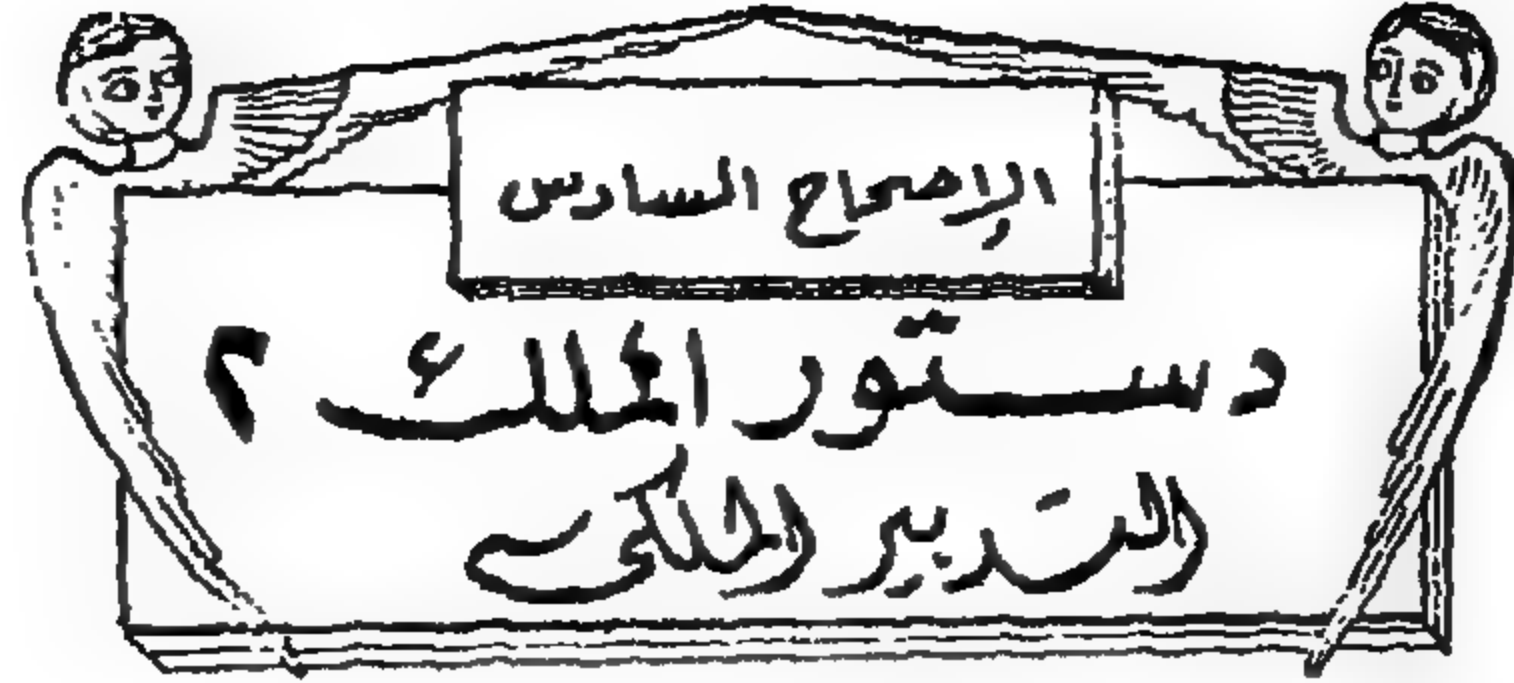 الإصحاح السادس
دستور الملك ٢
التدبير الملكى